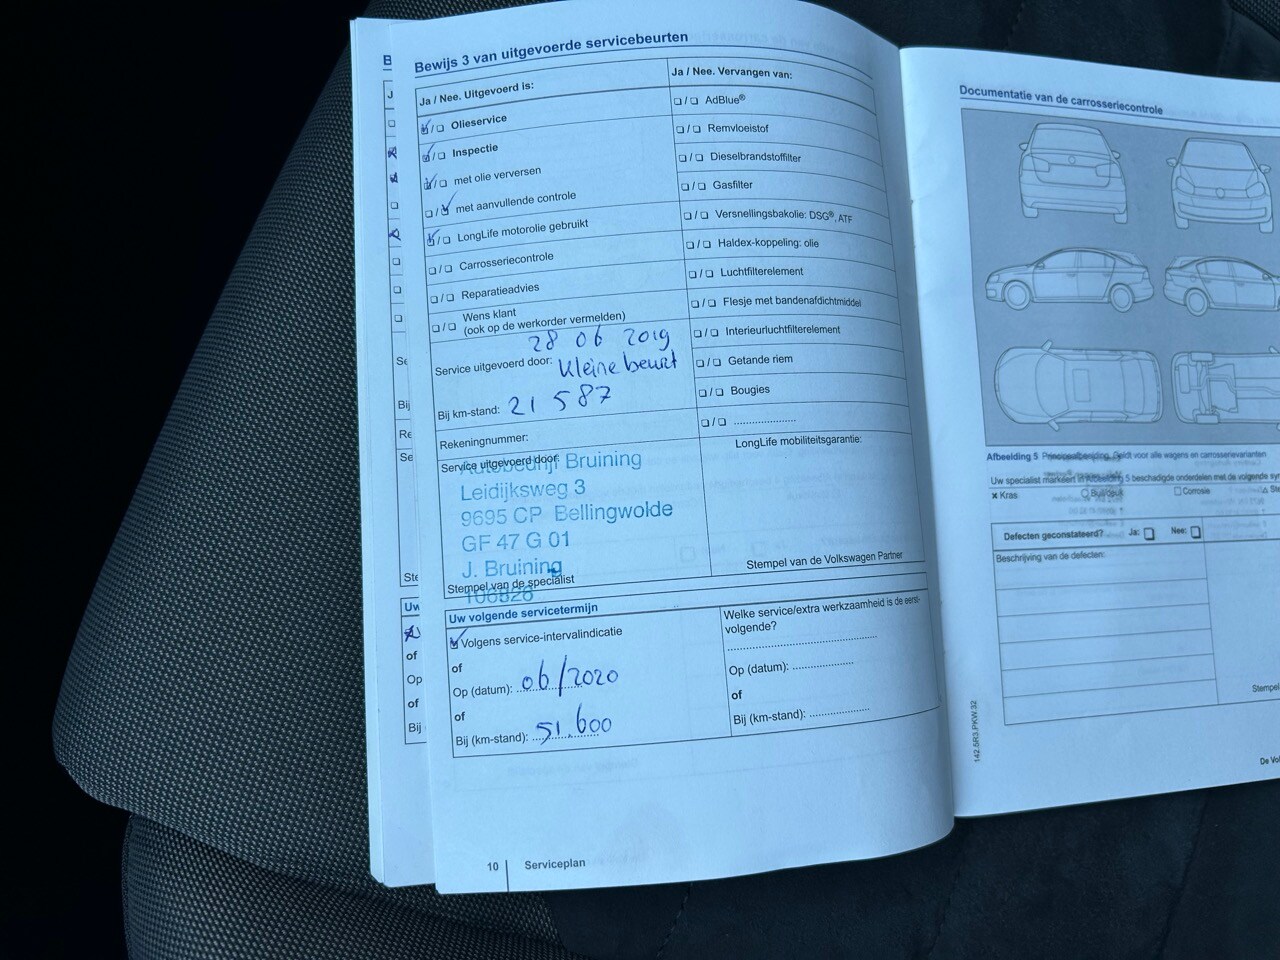 B
J
Se
Bij
Re
Se
Ste
Uw
of
Op
of
Bij
Bewijs 3 van uitgevoerde servicebeurten
Ja / Nee. Uitgevoerd is:
☑/☐ Olieservice
☑/☐ Inspectie
☑/☐ met olie verversen
☐/☑ met aanvullende controle
☑/☐ LongLife motorolie gebruikt
☐/☐ Carrosseriecontrole
☐/☐ Reparatieadvies
☐/☐ Wens klant
(ook op de werkorder vermelden)
28 06 2019
Service uitgevoerd door: Kleine beurt
Bij km-stand: 21 587
Rekeningnummer:
Service uitgevoerd door:
Autobedrijf Bruining
Leidijksweg 3
9695 CP Bellingwolde
GF 47 G 01
J. Bruining
Stempel van de specialist
Ja / Nee. Vervangen van:
☐/☐ AdBlue®
☐/☐ Remvloeistof
☐/☐ Dieselbrandstoffilter
☐/☐ Gasfilter
☐/☐ Versnellingsbakolie: DSG®, ATF
☐/☐ Haldex-koppeling: olie
☐/☐ Luchtfilterelement
☐/☐ Flesje met bandenafdichtmiddel
☐/☐ Interieurluchtfilterelement
☐/☐ Getande riem
☐/☐ Bougies
☐/☐ ....................
LongLife mobiliteitsgarantie:
Stempel van de Volkswagen Partner
Uw volgende servicetermijn
☑ Volgens service-intervalindicatie
of
Op (datum): 06/2020
of
Bij (km-stand): 51.600
Welke service/extra werkzaamheid is de eerst-
volgende?
Op (datum): ....................
of
Bij (km-stand): ....................
10 Serviceplan
Documentatie van de carrosseriecontrole
Afbeelding 5 Principeafbeelding. Geldt voor alle wagens en carrosserievarianten
Uw specialist markeert in Afbeelding 5 beschadigde onderdelen met de volgende
× Kras ○ Buil/deuk ☐ Corrosie △
Defecten geconstateerd? Ja: ☐ Nee: ☐
Beschrijving van de defecten:
Stempel
142.5R3.PKW.32
De Vol